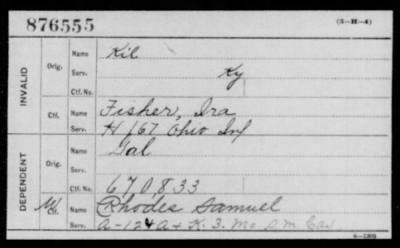 876555 (3-H-4)
INVALID
Orig. Name Kil
Serv. Ky
Ctf. No.
Ctf. Name Fisher, Ira
Serv. H 167 Ohio Inf
DEPENDENT
Orig. Name Gal
Serv.
670833
Ctf. Name Rhodes Samuel
Serv. A-12 & A & K. 3. Mo S.M. Cav
6-1309